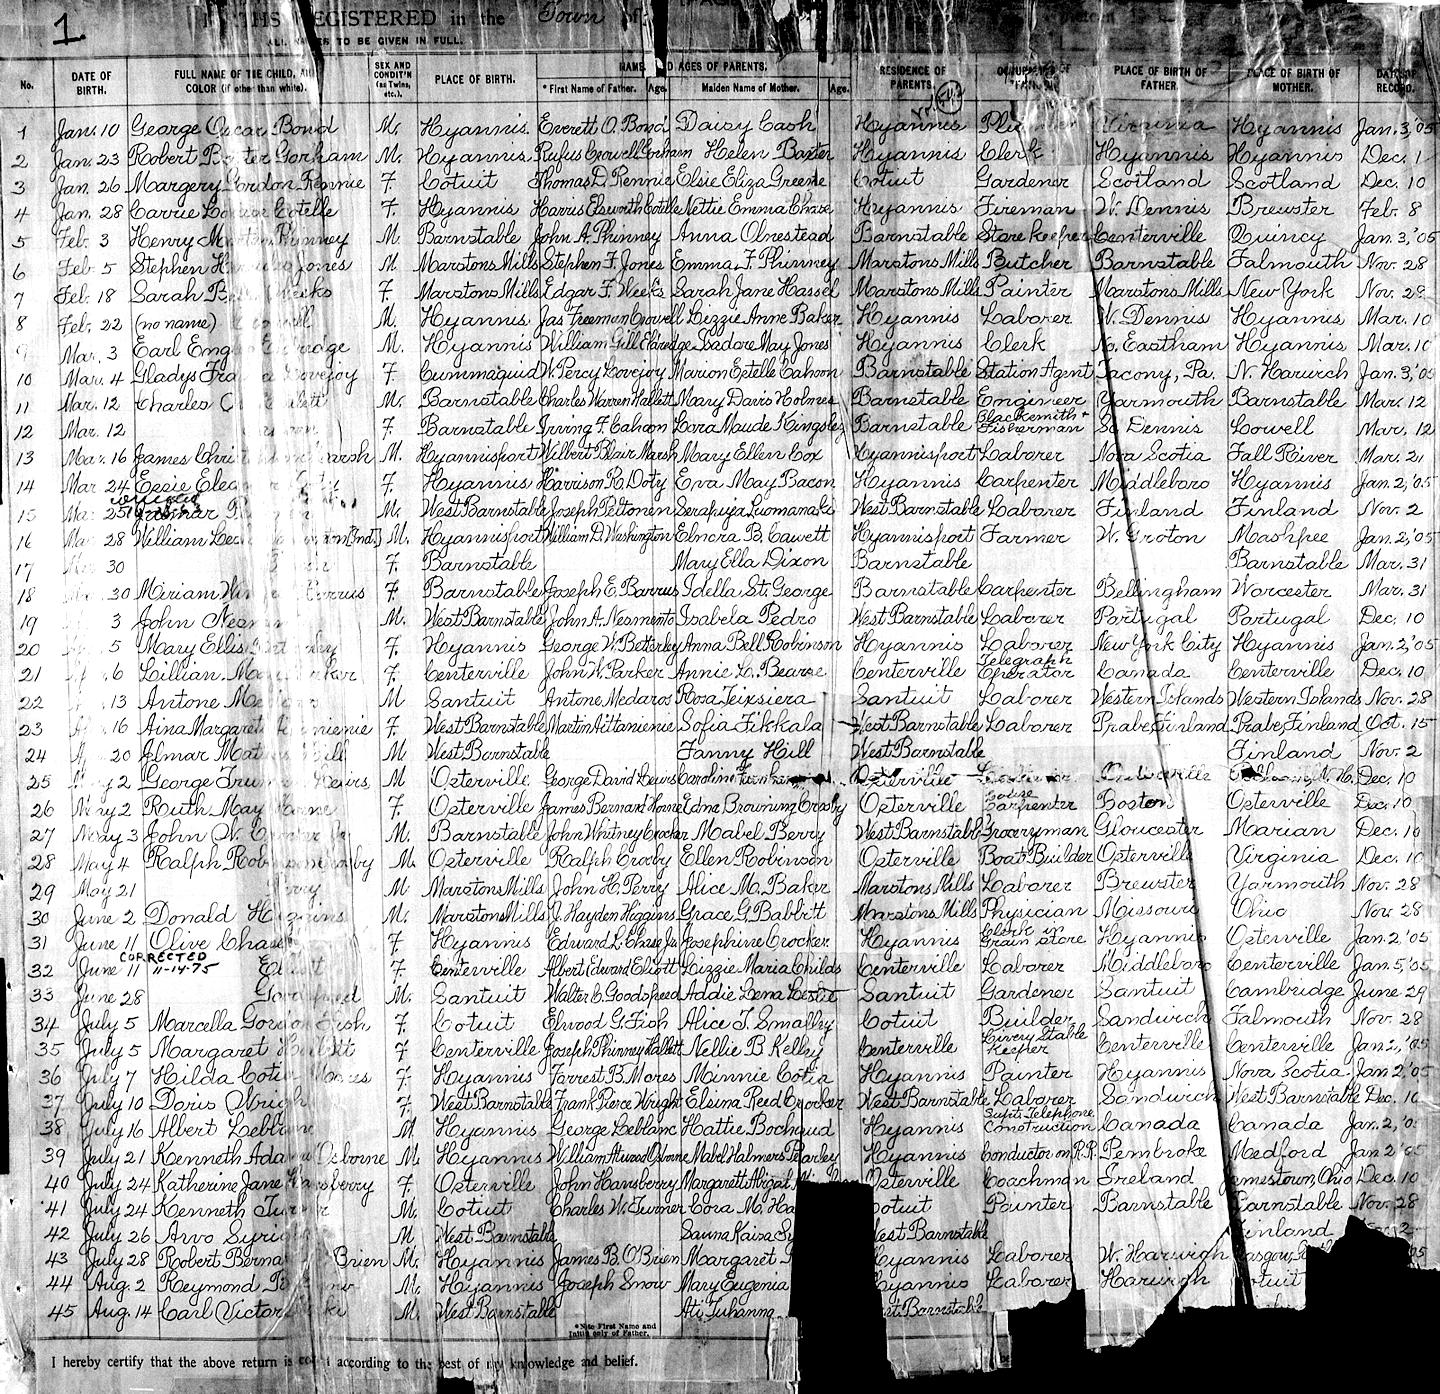 1
REGISTERED in the Town of
TO BE GIVEN IN FULL.
No. DATE OF BIRTH. FULL NAME OF THE CHILD, AND COLOR (if other than white). SEX AND CONDIT'N (as Twins, etc.). PLACE OF BIRTH. NAMES AND AGES OF PARENTS. * First Name of Father. Age. Maiden Name of Mother. Age. RESIDENCE OF PARENTS. OCCUPATION OF FATHER. PLACE OF BIRTH OF FATHER. PLACE OF BIRTH OF MOTHER. DATE OF RECORD.
1 Jan. 10 George Oscar Bond M. Hyannis Everett O. Bond Daisy Cash Hyannis Plumber Virginia Hyannis Jan. 3, '05
2 Jan. 23 Robert Baxter Gorham M. Hyannis Rufus Crowell Gorham Helen Baxter Hyannis Clerk Hyannis Hyannis Dec. 1
3 Jan. 26 Margery Gordon Rennie F. Cotuit Thomas D. Rennie Elsie Eliza Greene Cotuit Gardener Scotland Scotland Dec. 10
4 Jan. 28 Carrie Cotelle F. Hyannis Harris Elsworth Cotelle Nettie Emma Chase Hyannis Fireman W. Dennis Brewster Feb. 8
5 Feb. 3 Henry Phinney M. Barnstable John A. Phinney Anna Olnestead Barnstable Store keeper Centerville Quincy Jan. 3, '05
6 Feb. 5 Stephen Jones M Marstons Mills Stephen F. Jones Emma F. Phinney Marstons Mills Butcher Barnstable Falmouth Nov. 28
7 Feb. 18 Sarah Weeks F. Marstons Mills Edgar F. Weeks Sarah Jane Hassel Marstons Mills Painter Marstons Mills New York Nov. 28
8 Feb. 22 (no name) M. Hyannis Jas Freeman Crowell Lizzie Anne Baker Hyannis Laborer W. Dennis Hyannis Mar. 10
9 Mar. 3 Earl Eldredge M. Hyannis William Gill Eldredge Isadore May Jones Hyannis Clerk No. Eastham Hyannis Mar. 10
10 Mar. 4 Gladys Lovejoy F. Cummaquid W. Percy Lovejoy Marion Estelle Cahoon Barnstable Station Agent Tacony, Pa. N. Harwich Jan. 3, '05
11 Mar. 12 Charles M. Barnstable Charles Warren Hallett Mary Davis Holmes Barnstable Engineer Yarmouth Barnstable Mar. 12
12 Mar. 12 F. Barnstable Irving F. Cahoon Cora Maude Kingsley Barnstable Blacksmith + Fisherman So Dennis Lowell Mar. 12
13 Mar. 16 James Marsh M. Hyannisport Wilbert Blair Marsh Mary Ellen Cox Hyannisport Laborer Nova Scotia Fall River Mar. 21
14 Mar 24 F. Hyannis Harrison R. Doty Eva May Bacon Hyannis Carpenter Middleboro Hyannis Jan. 2, '05
15 M. West Barnstable Joseph Peltonen West Barnstable Laborer Finland Finland Nov. 2
16 28 William [Ind.] M. Hyannisport William D. Washington Elnora B. Cawett Hyannisport Farmer W. Groton Mashpee Jan. 2, '05
17 30 F. Barnstable Mary Ella Dixon Barnstable Barnstable Mar. 31
18 30 Miriam Barrus F Barnstable Joseph E. Barrus Idella St. George Barnstable Carpenter Bellingham Worcester Mar. 31
19 3 John M. West Barnstable John A. Nesmento Isabela Pedro West Barnstable Laborer Portugal Portugal Dec. 10
20 5 Mary Ellis Betterley F. Hyannis George W. Betterley Anna Bell Robinson Hyannis Laborer New York City Hyannis Jan. 2, '05
21 6 Lillian Parker F. Centerville John W. Parker Annie L. Bearse Centerville Telegraph Operator Canada Centerville Dec. 10
22 13 Antone M Santuit Antone Medaros Rosa Teixsiera Santuit Laborer Western Islands Western Islands Nov. 28
23 16 Aina Margaret F. West Barnstable Martin Aittanienie Sofia Fikkala West Barnstable Laborer Prabe, Finland Prabe, Finland Oct. 15
24 20 Ilmar Hill M West Barnstable Fanny Hill West Barnstable Finland Nov. 2
25 May 2 George Lewis M Osterville George David Lewis Caroline Osterville N. H. Dec. 10
26 May 2 Ruth May Horne F. Osterville James Bernard Horne Edna Browning Crosby Osterville House Carpenter Boston Osterville Dec. 10
27 May 3 John N. Crocker Jr M. Barnstable John Whitney Crocker Mabel Berry West Barnstable Groceryman Gloucester Marian Dec. 10
28 May 4 Ralph Robinson Crosby M. Osterville Ralph Crosby Ellen Robinson Osterville Boat Builder Osterville Virginia Dec. 10
29 May 21 Perry M Marstons Mills John H. Perry Alice M. Baker Marstons Mills Laborer Brewster Yarmouth Nov. 28
30 June 2 Donald Higgins M. Marstons Mills J. Hayden Higgins Grace G. Babbitt Marstons Mills Physician Missouri Ohio Nov 28
31 June 11 Olive Chase F. Hyannis Edward L. Chase Jr Josephine Crocker Hyannis Clerk in Grain Store Hyannis Osterville Jan. 2 '05
CORRECTED 11-14-75
32 June 11 Elliott F. Centerville Albert Edward Elliott Lizzie Maria Childs Centerville Laborer Middleboro Centerville Jan. 5, '05
33 June 28 Goodspeed M. Santuit Walter C. Goodspeed Addie Lena Leslie Santuit Gardener Santuit Cambridge June 29
34 July 5 Marcella Gordon Fish F. Cotuit Elwood G. Fish Alice T. Smalley Cotuit Builder Sandwich Falmouth Nov. 28
35 July 5 Margaret Hallett F. Centerville Joseph Phinney Hallett Nellie B Kelley Centerville Livery Stable Keeper Centerville Centerville Jan. 2, '05
36 July 7 Hilda Cotia Mores F. Hyannis Forrest B. Mores Minnie Cotia Hyannis Painter Hyannis Nova Scotia Jan 2, '05
37 July 10 Doris Wright F. West Barnstable Frank Pierce Wright Elsina Reed Crocker West Barnstable Laborer Sandwich West Barnstable Dec. 10
38 July 16 Albert Leblanc M Hyannis George Leblanc Hattie Bochaud Hyannis Supt. Telephone Construction Canada Canada Jan. 2, '05
39 July 21 Kenneth Adams Osborne M. Hyannis William Atwood Osborne Mabel Halmers Pearley Hyannis Conductor on R.R. Pembroke Medford Jan 2 '05
40 July 24 Katherine Jane Hansberry F. Osterville John Hansberry Margarett Abigail Osterville Coachman Ireland Jamestown, Ohio Dec. 10
41 July 24 Kenneth Turner M. Cotuit Charles W. Turner Cora M. Cotuit Painter Barnstable Barnstable Nov. 28
42 July 26 Arvo M West Barnstable Sanna Kaisa West Barnstable Finland
43 July 28 Robert O'Brien M. Hyannis James B. O'Brien Margaret Hyannis Laborer W. Harwich
44 Aug. 2 Reymond Snow M. Hyannis Joseph Snow Mary Eugenia Hyannis Laborer Harwich Cotuit
45 Aug. 14 Carl Victor M. West Barnstable West Barnstable
*Note First Name and Initial only of Father.
I hereby certify that the above return is correct according to the best of my knowledge and belief.